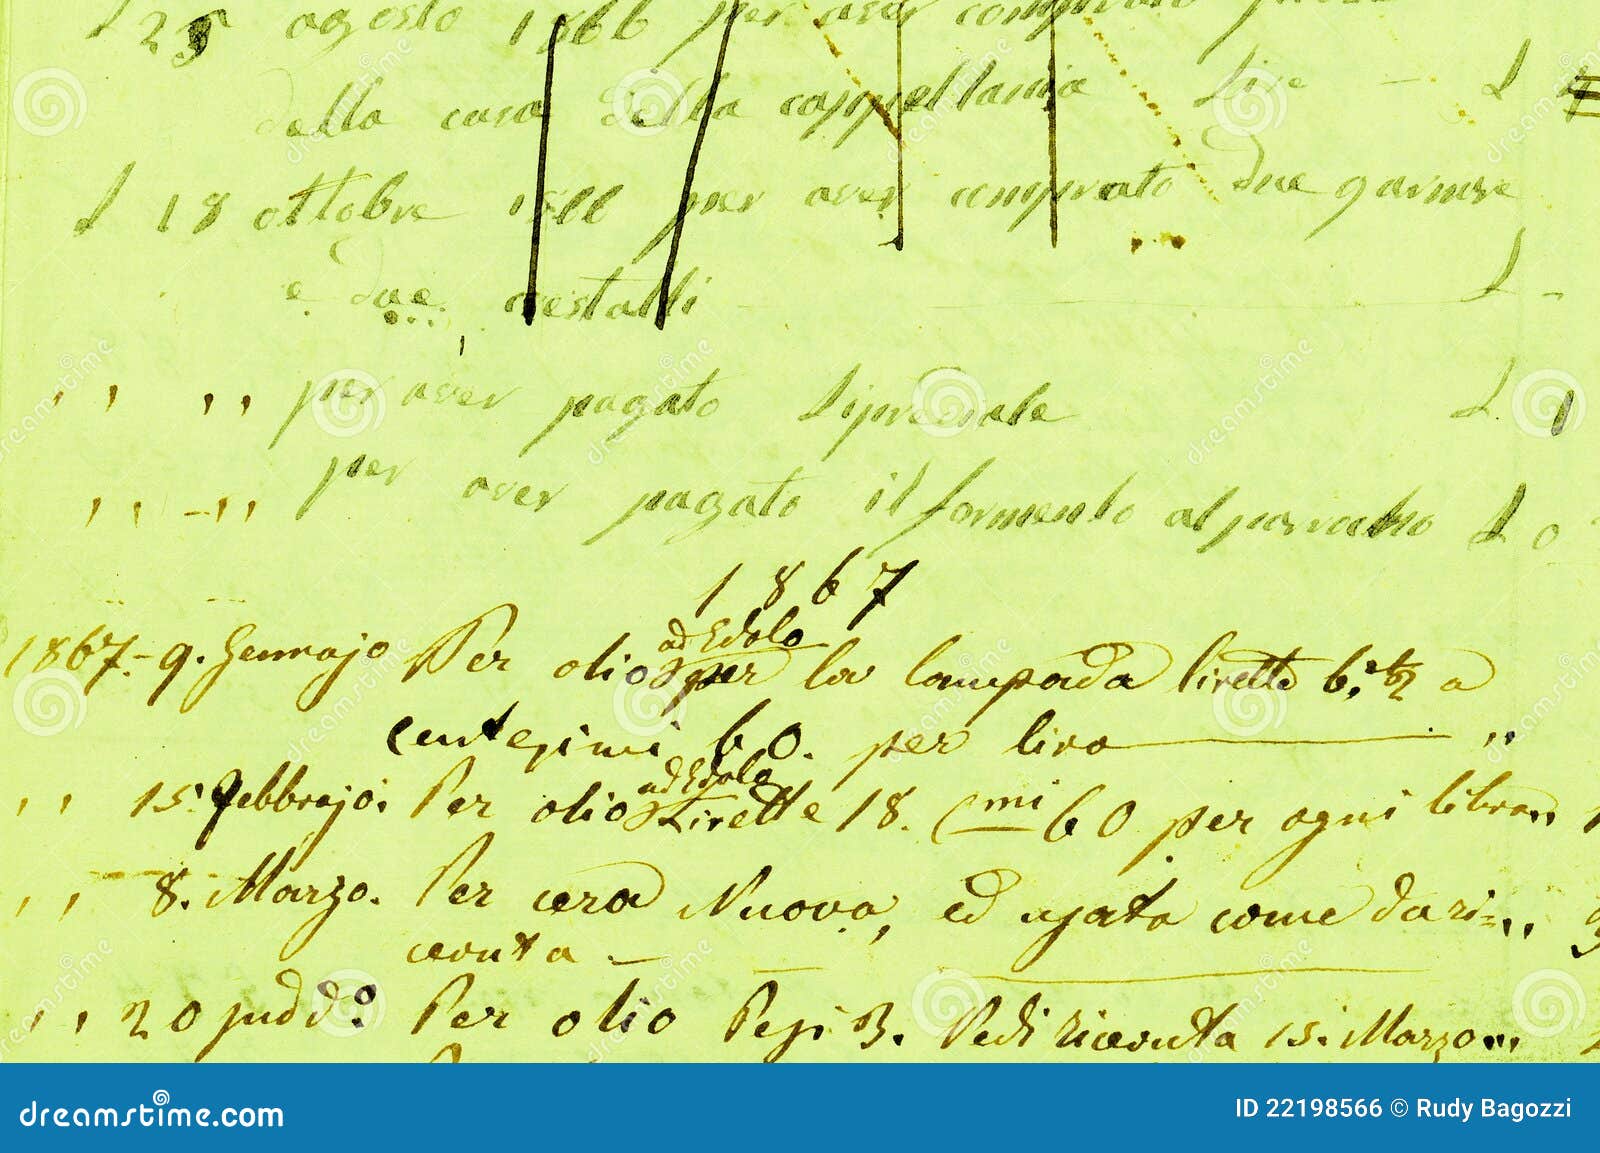 25 agosto 1866 per aver comprato
della casa della cappellania Lire - L
L 18 ottobre 1866 per aver comprato due
e due L -
" " " " per aver pagato L 1
" " - " " per aver pagato il formento al parrocho L 0
1867
1867. - 9. Gennajo Per olio ad Edolo per la lampada lirette 6. 1/2 a
centesimi 60. per lira "
" " 15 Febbrajo. Per olio ad Edolo Lirette 18. Cmi 60 per ogni libra "
" " 8. Marzo. Per cera Nuova, ed usata come da ri= "
cevuta -
" " 20 sudd.o Per olio Pesi 3. Vedi ricevuta 15. Marzo "
dreamstime.com
ID 22198566 © Rudy Bagozzi